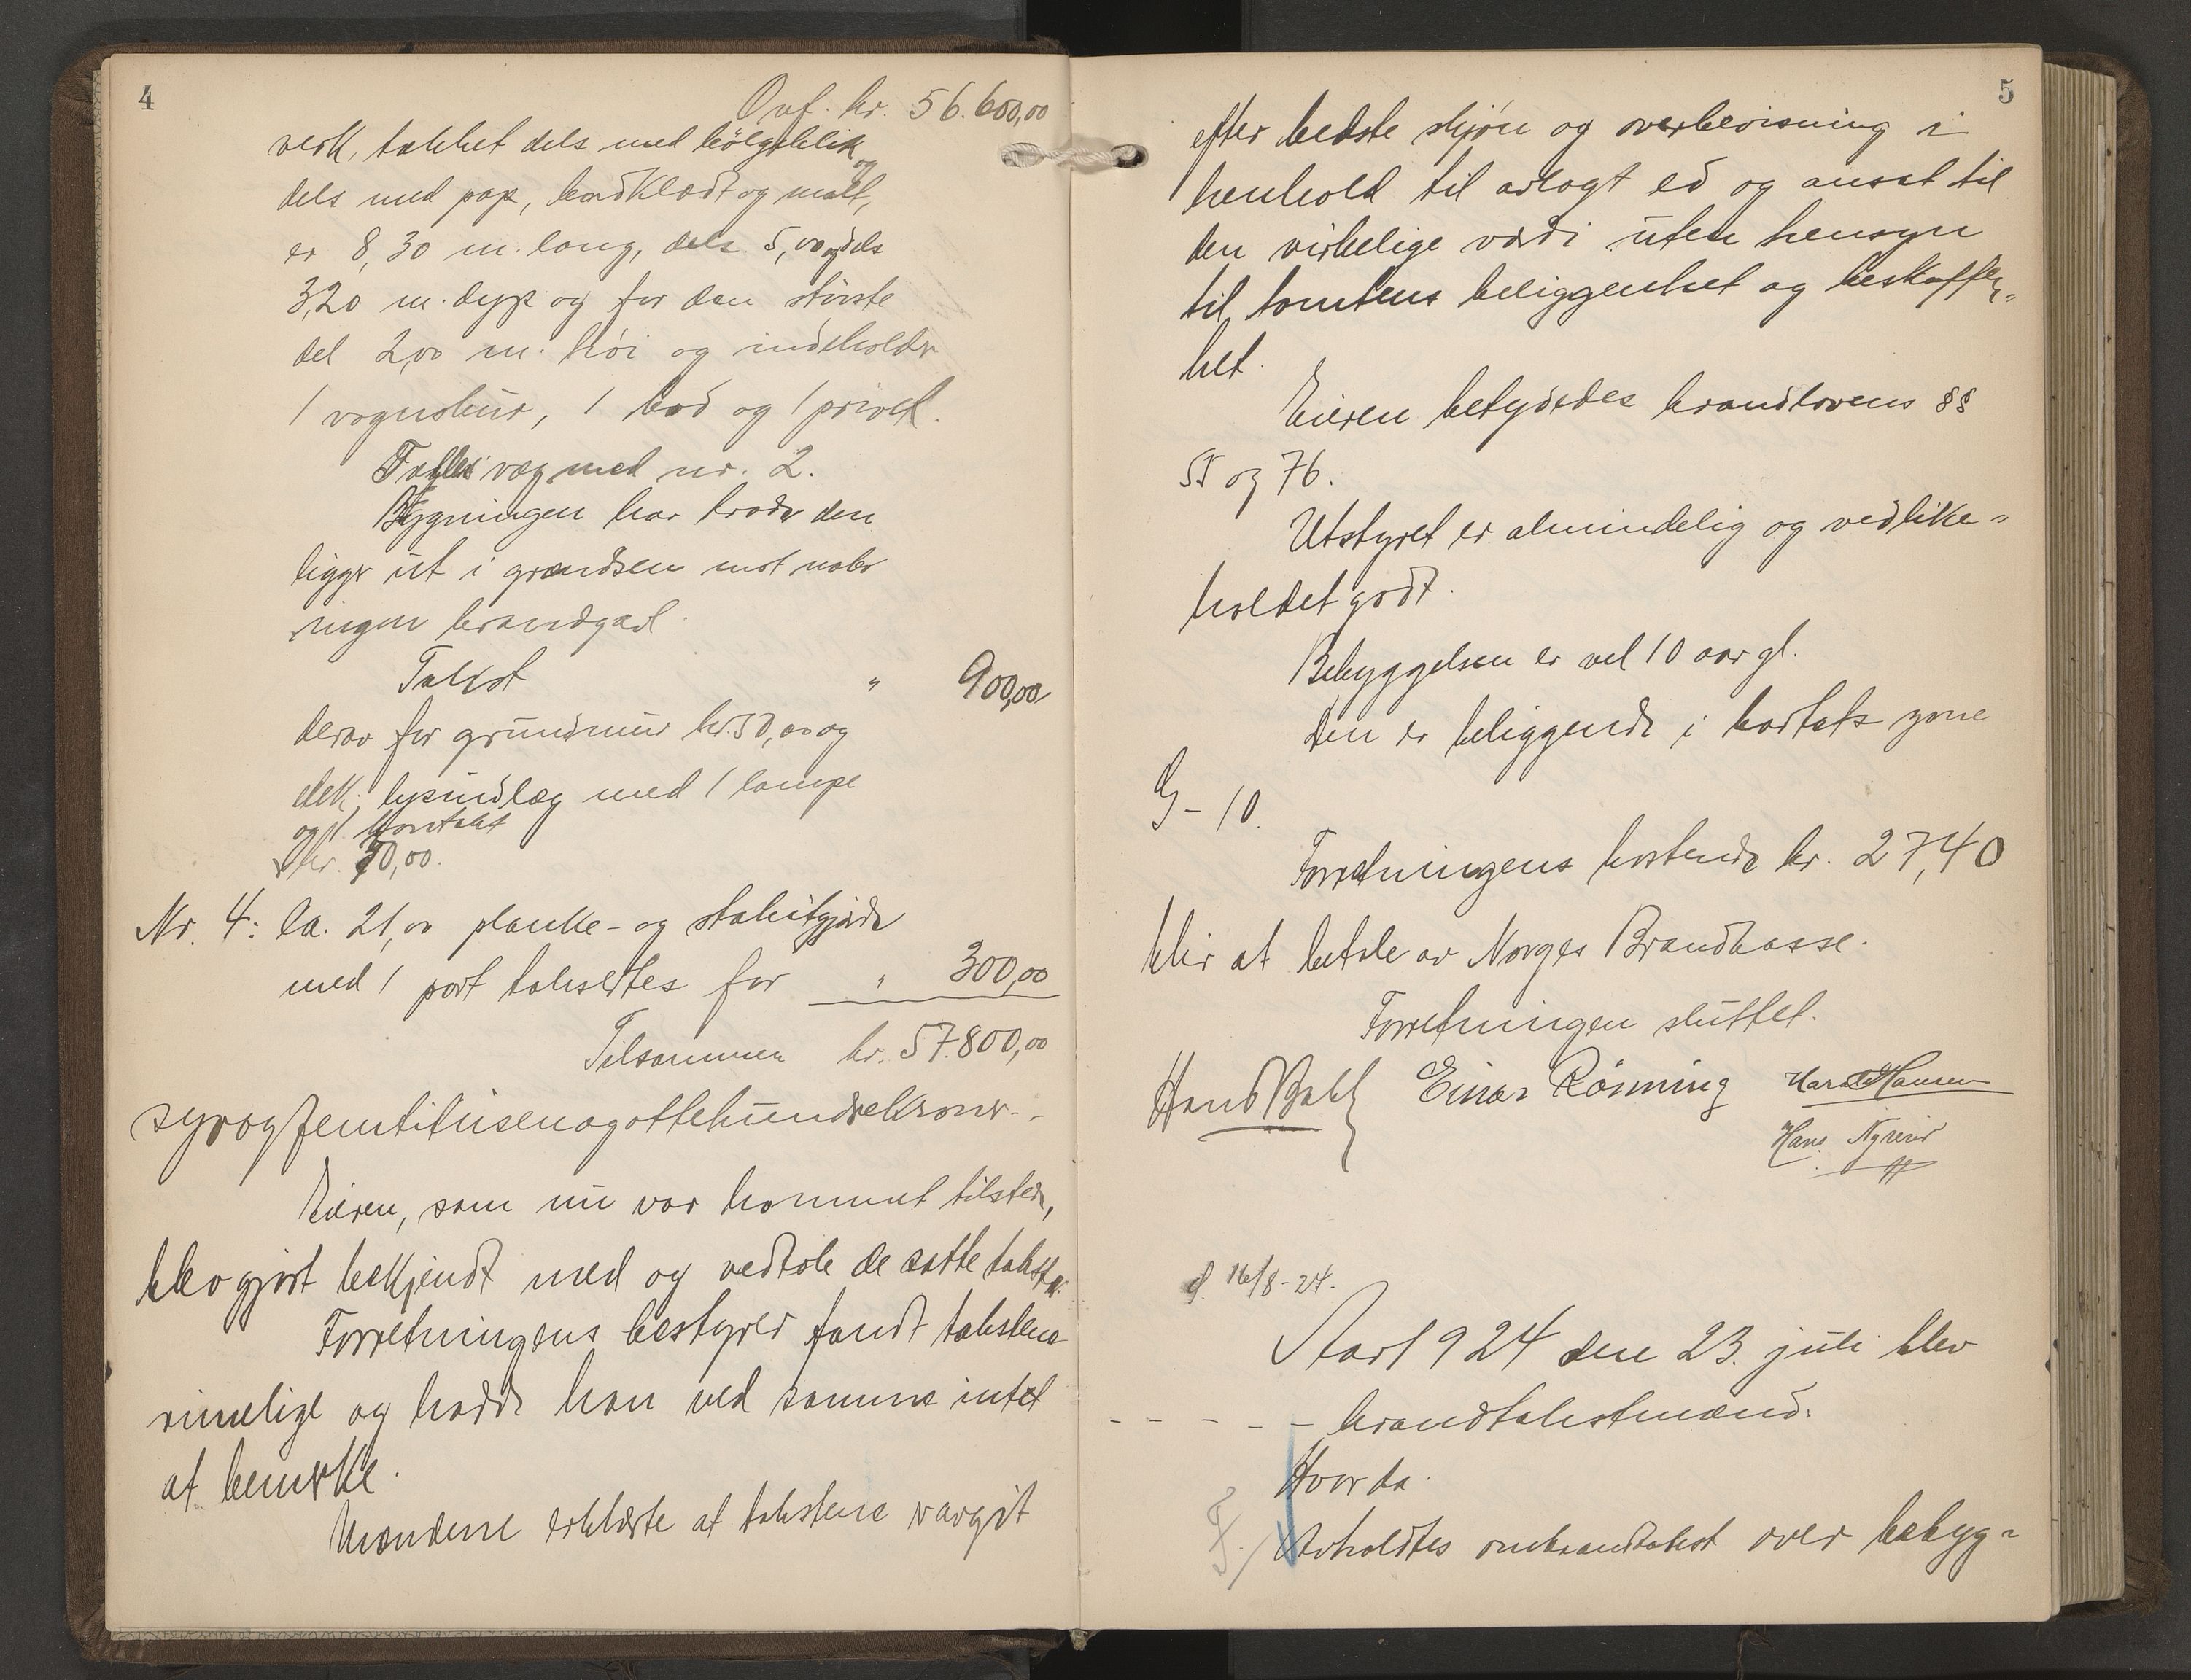 4
Ovf. kr. 56.600,00
verk, tækket dels med bölgeblik
og
dels med pap, bordklædt og malt,
er 8,30 m. lang, dels 5,00 og dels
3,20 m. dyp og for den störste
del 2,00 m. høi og indeholder
1 vognskur, 1 bod og 1 privet.
Fælles væg med nr. 2.
Bygningen har hvor den
ligger ut i grændsen mot nabo
ingen brandgavl.
Takst " 900,00
derav for grundmur kr. 50,00 og
elek. lysindlæg med 1 lampe
og 1 kontakt
kr. 30,00.
Nr. 4: Ca. 21,00 planke- og stakitgjærde
med 1 port takseredes for " 300,00
Tilsammen kr. 57.800,00
syvogfemtitusenogottehundrekroner.-
Eieren, som nu var kommet tilstede,
blev gjort bekjendt med og vedtok de satte takster.
Forretningens bestyrer fandt takstene
rimelige og hadde han ved samme intet
at bemerke.
Mændene erklærte at takstene var git
5
efter bedste skjøn og overbevisning i
henhold til avlagt ed og ansat til
den virkelige værdi uten hensyn
til tomtens beliggenhet og beskaffen-
het.
Eieren betydedes brandlovens §§
55 og 76.
Utstyret er almindelig og vedlike-
holdet godt.
Bebyggelsen er vel 10 aar gl.
Den er beliggende i kartets zone
G-10.
Forretningens kostende kr. 27,40
blir at betale av Norges Brandkasse.
Forretningen sluttet.
Hans Einar Rönning Harald Hansen
Hans
d. 16/8-24.
Aar 1924 den 23. juli blev
- - - - - brandtakstmænd.
Hvorda
F. / Avholdtes ombrandtakst over bebyg-